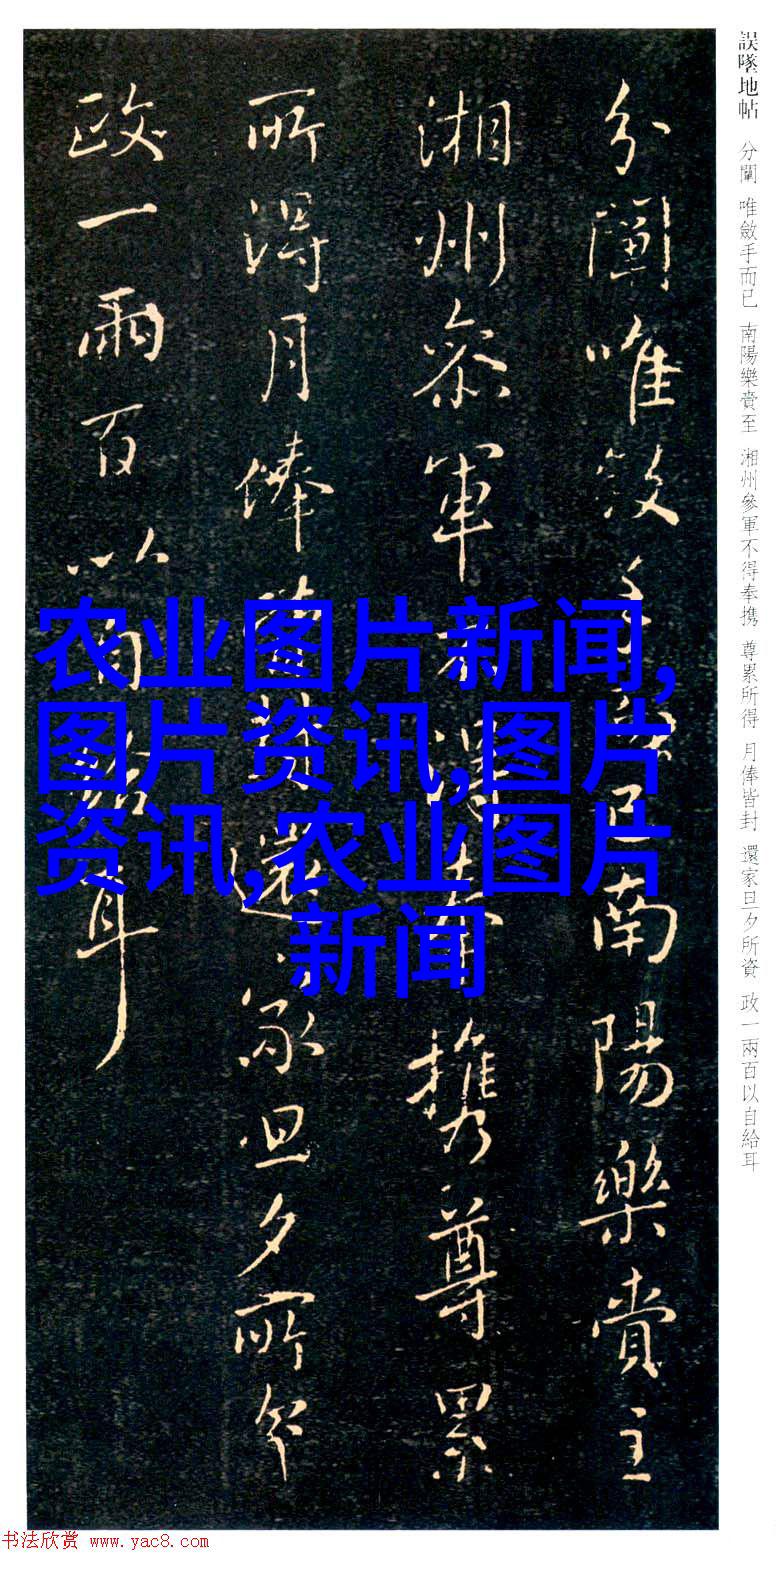 誤墜地帖 分闡 唯斂手而已 南陽樂賚至 湘州參軍不得奉携 尊累所得 月俸皆封 還家旦夕所資 政一兩百以自給耳
分闡唯斂手而已南陽樂賚至
湘州參軍不得奉携尊累
所得月俸皆封還家旦夕所資
政一兩百以自給耳
农业图片新闻,
图片资讯,图片
资讯,农业图片
新闻
书法欣赏 www.yac8.com